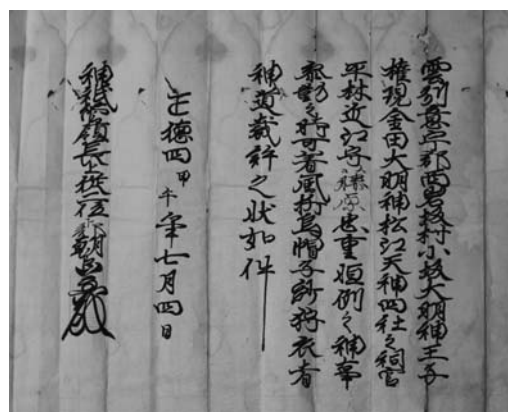 雲州意宇郡西岩坂村小坂大明神王子
権現金田大明神松江天神四社之祠官
平林近江守藤原忠重恒例之神事
参勤之時可着風折烏帽子紗狩衣者
神道裁許之状如件
正徳四甲午年七月四日
神祇管領長上従二位卜部朝臣兼敬